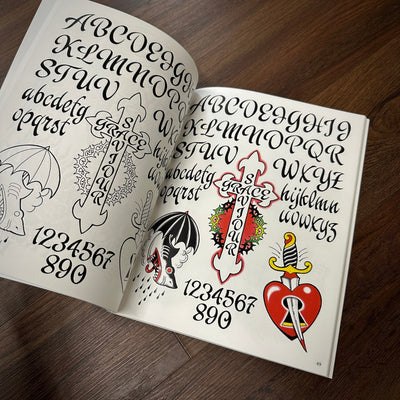 ABCDEFGHIJ
KLMNOPQR
STUV
abcdefg
opqrst
GRACE
SAVIOUR
1234567
890
ABCDEFGHIJ
KLMNOPQR
STUV
WXYZ
abcdefg
hijklmn
opqrst
uvwxyz
GRACE
SAVIOUR
1234567
890